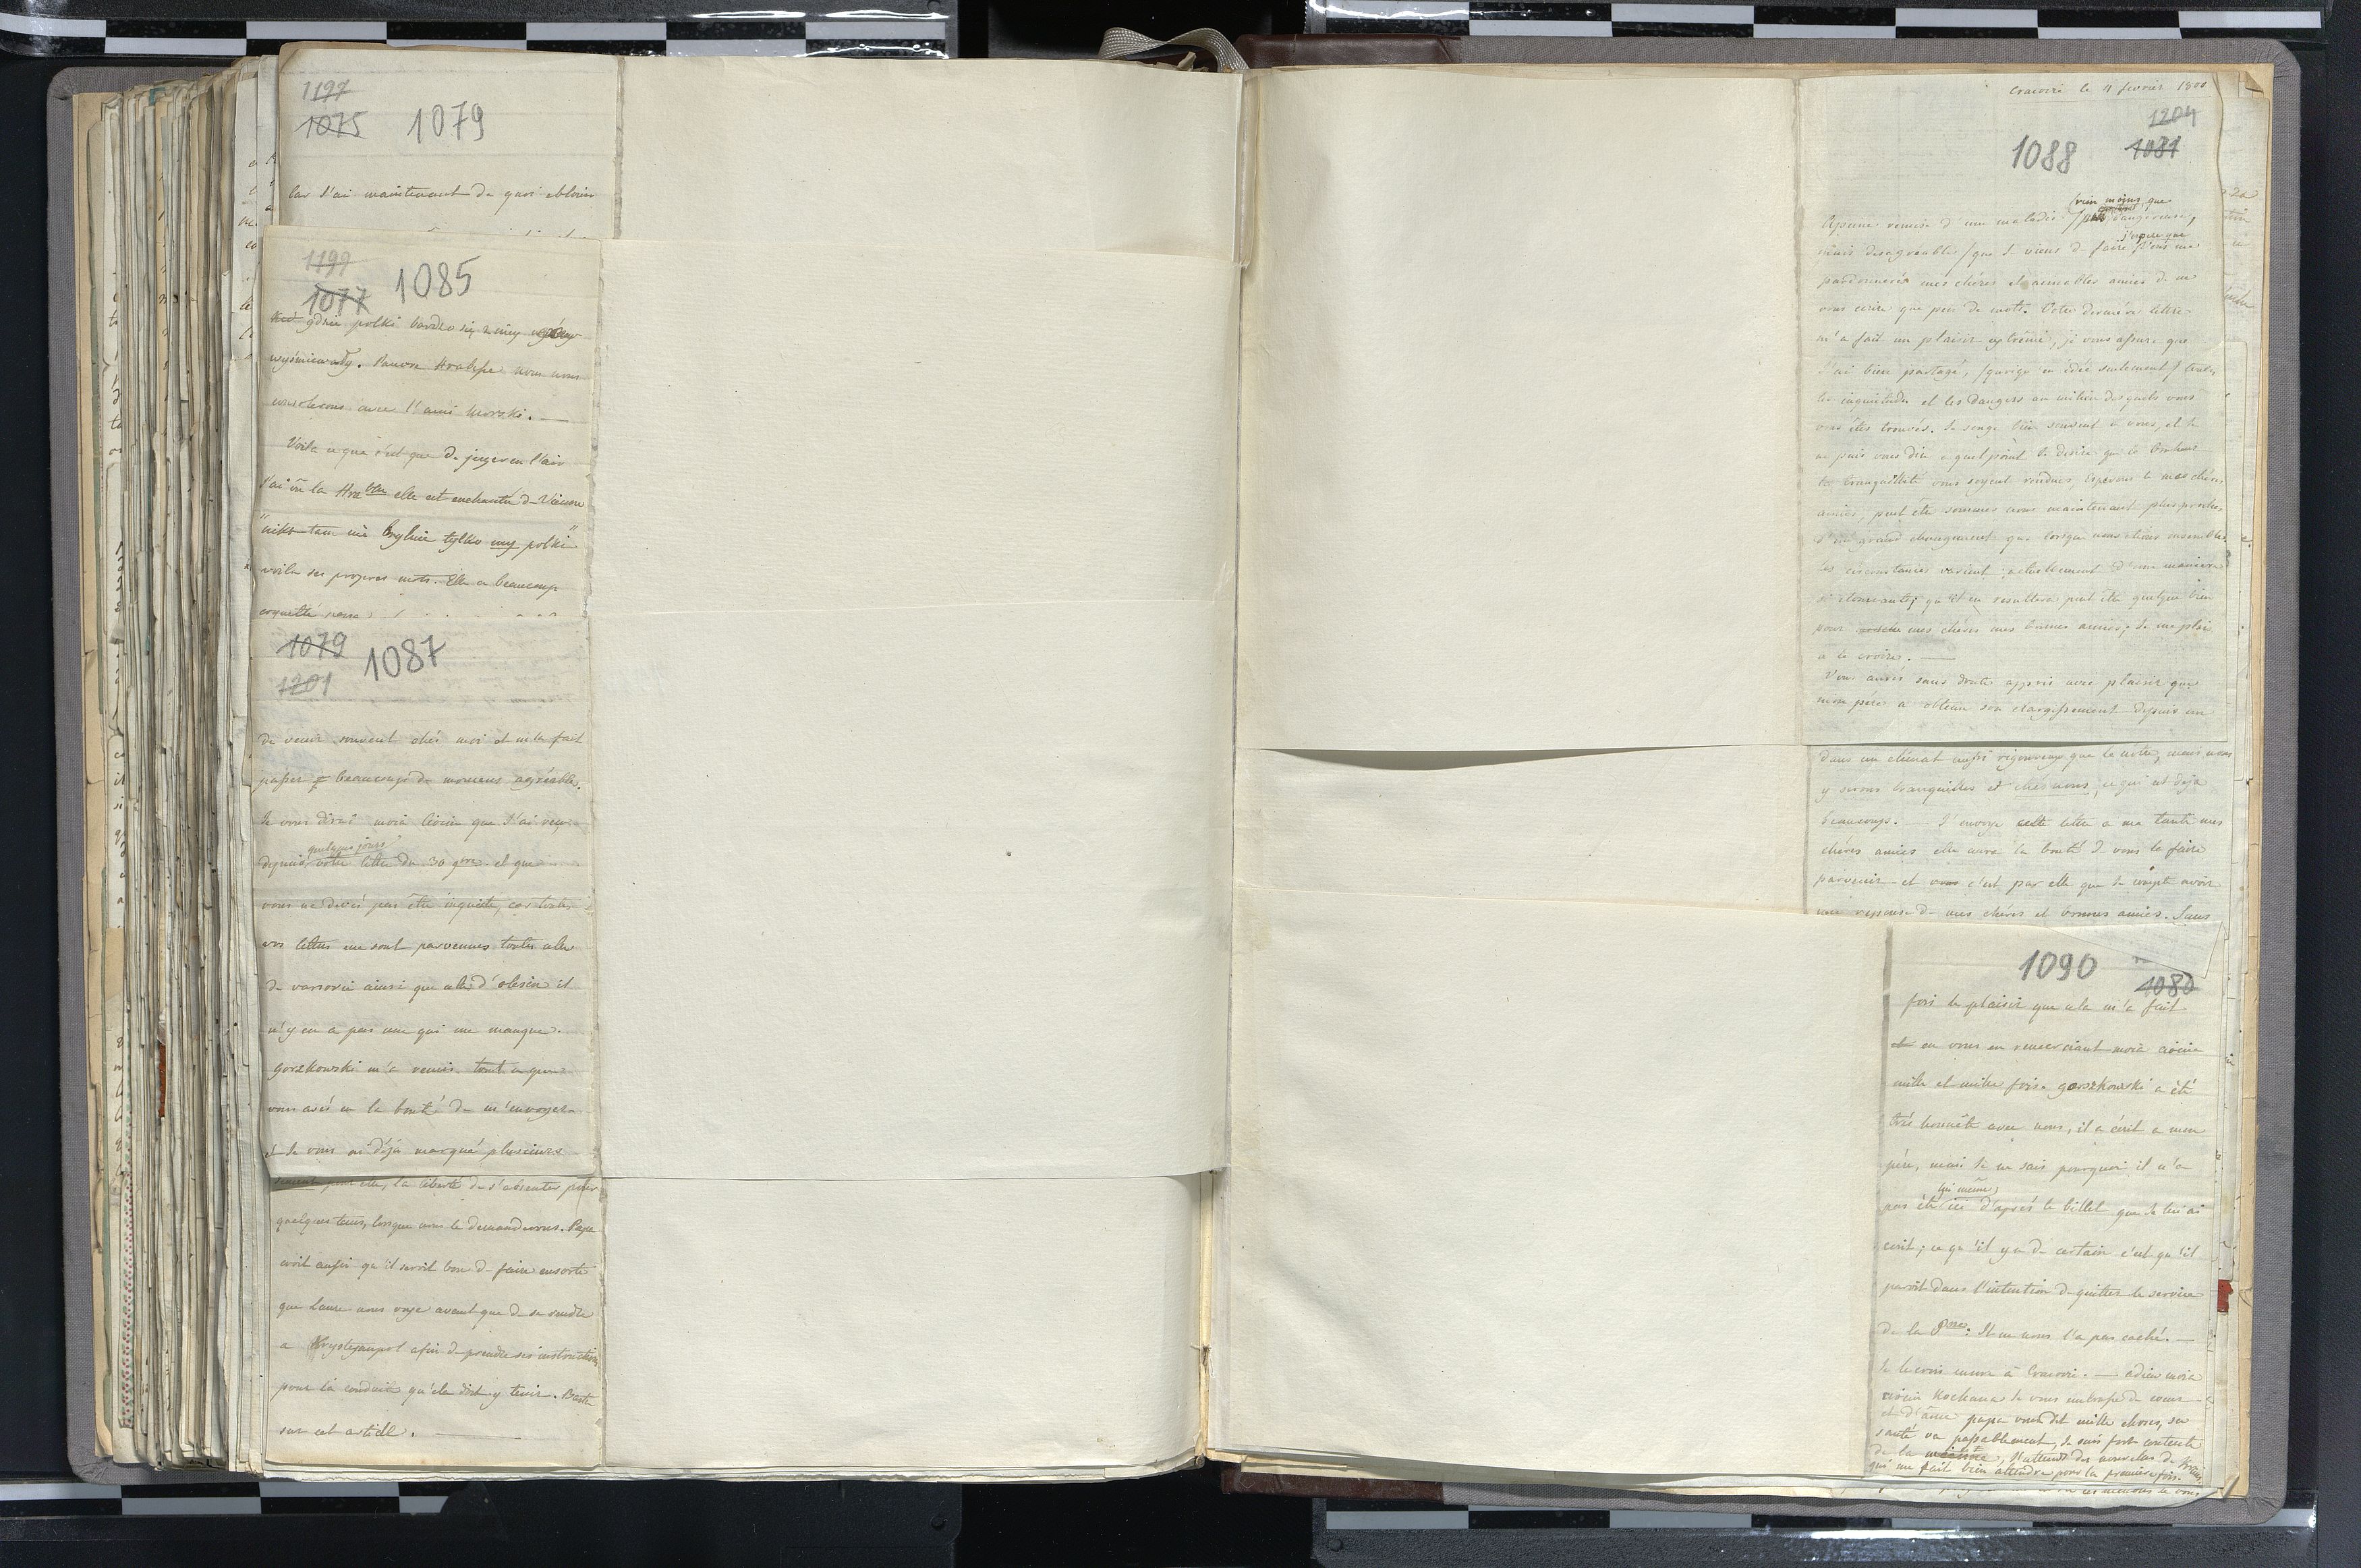 1197
1075 1079
car j'ai maintenant de quoi
1199
1077 1085
gdzie polki bardzo się z niey
wyśmiewały. Pauvre nous nous
consolerons avec l'ami Morski. —
Voila ce que c'est que de juger en l'air
J'ai vu la elle est enchantée de Vienne
"nikt tam nie tylko my polki"
voila ses propres mots. Elle a beaucoup
coqueté
1079 1087
1201
de venir souvent chés moi et m'a fait
passer beaucoup de momens agréables.
Je vous dirai moia ciocia que j'ai reçu
quelques jours
depuis votre lettre du 30 et que
vous ne devés pas être inquiete, car toutes
vos lettres me sont parvenues toutes celles
de varsovie ainsi que celle d'olesin il
n'y en a pas une qui me manque.
gorzkowski m'a remis tout ce que
vous avés eu la bonté de m'envoyer
et Je vous ai déjà marqué plusieurs
pour elle, la liberté de s'absenter pour
quelques tems, lorsque nous le demanderons. Papa
croit aussi qu'il seroit bon de faire ensorte
que Laure nous voye avant que de se rendre
a Krystynopol afin de prendre ses instructions
pour la conduite qu'elle doit y tenir. Basta
sur cet article. —
Cracovie le 4 fevrier 1800
1204
1088 1081
(rien moins que
Apeine remise d'une maladie dangereuse,
j'espere que
mais desagreable (que je viens de faire) vous me
pardonnerés mes chéres et aimables amies de ne
vous ecrire que peu de mots. Votre derniére lettre
m'a fait un plaisir extréme, je vous assure que
J'ai bien partagé, (quoique en idée seulement) toutes
les inquietudes et les dangers au milieu desquels vous
vous êtes trouvés. Je songe bien souvent à vous, et je
ne puis vous dire a quel point je desire que le bonheur
la tranquillité vous soyent rendues, Espérons le mes chéres
amies, peut être sommes nous maintenant plus proches
d'un grand changement que lorsque nous étions ensembles.
les circonstances varient actuellement d'une maniere
si etonnante, qu'il en resultera peut être quelque bien
pour mes chéres mes bonnes amies, je me plai
a le croire. —
Vous aurés sans doute appris avec plaisir que
mon pére a obtenu son elargissement depuis un
dans un climat aussi rigoureux que le notre, mais nous
y serons tranquilles et chés nous, ce qui est deja
beaucoup. — J'envoye cette lettre a ma tante mes
chéres amies elle aura la bonté de vous la faire
parvenir et c'est par elle que je compte avoir
une reponse de mes chéres et bonnes amies. Sans
1090 1080
fois le plaisir que cela m'a fait
et en vous en remerciant moia ciocia
mille et mille fois. gorzkowski a été
trés honnête avec nous, il a écrit a mon
pére, mais je ne sais pourquoi il n'a
lui même
pas été ici d'aprés le billet que je lui ai
ecrit; ce qu'il y a de certain c'est qu'il
paroit dans l'intention de quitter le service
de la Psse. Il ne nous l'a pas caché. —
Je le crois encore à Cracovie. — adieu moia
ciocia Kochana je vous embrasse de coeur
et d'âme papa vous dit mille choses, sa
santé va passablement, je suis fort contente
de la J'attends des nouvelles de
qui me fait bien attendre pour la premiere fois.